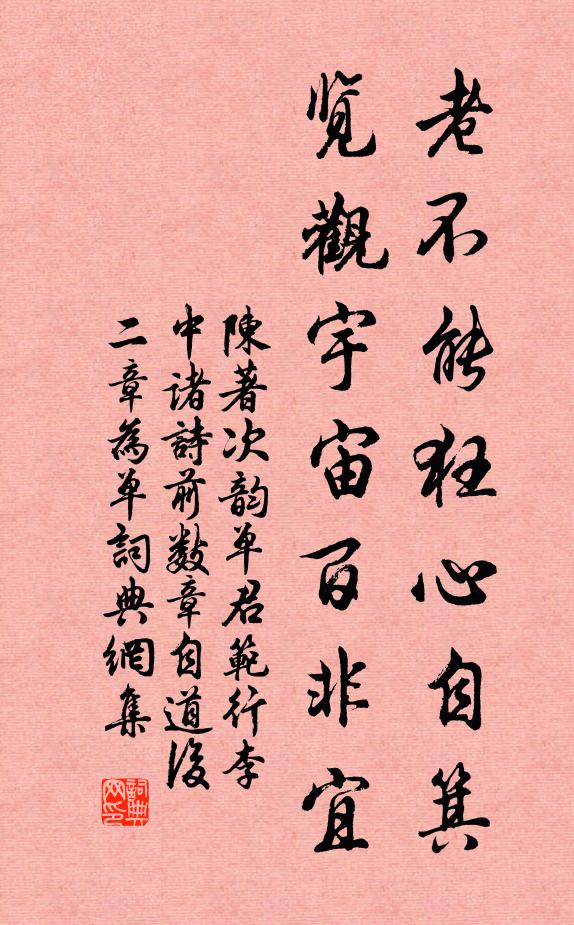 老不能狂心自箕
览觀宇宙百非宜
陳著次韵单君範行李
中诸詩前数章自道後
二章為单詞典網集
詞典網印